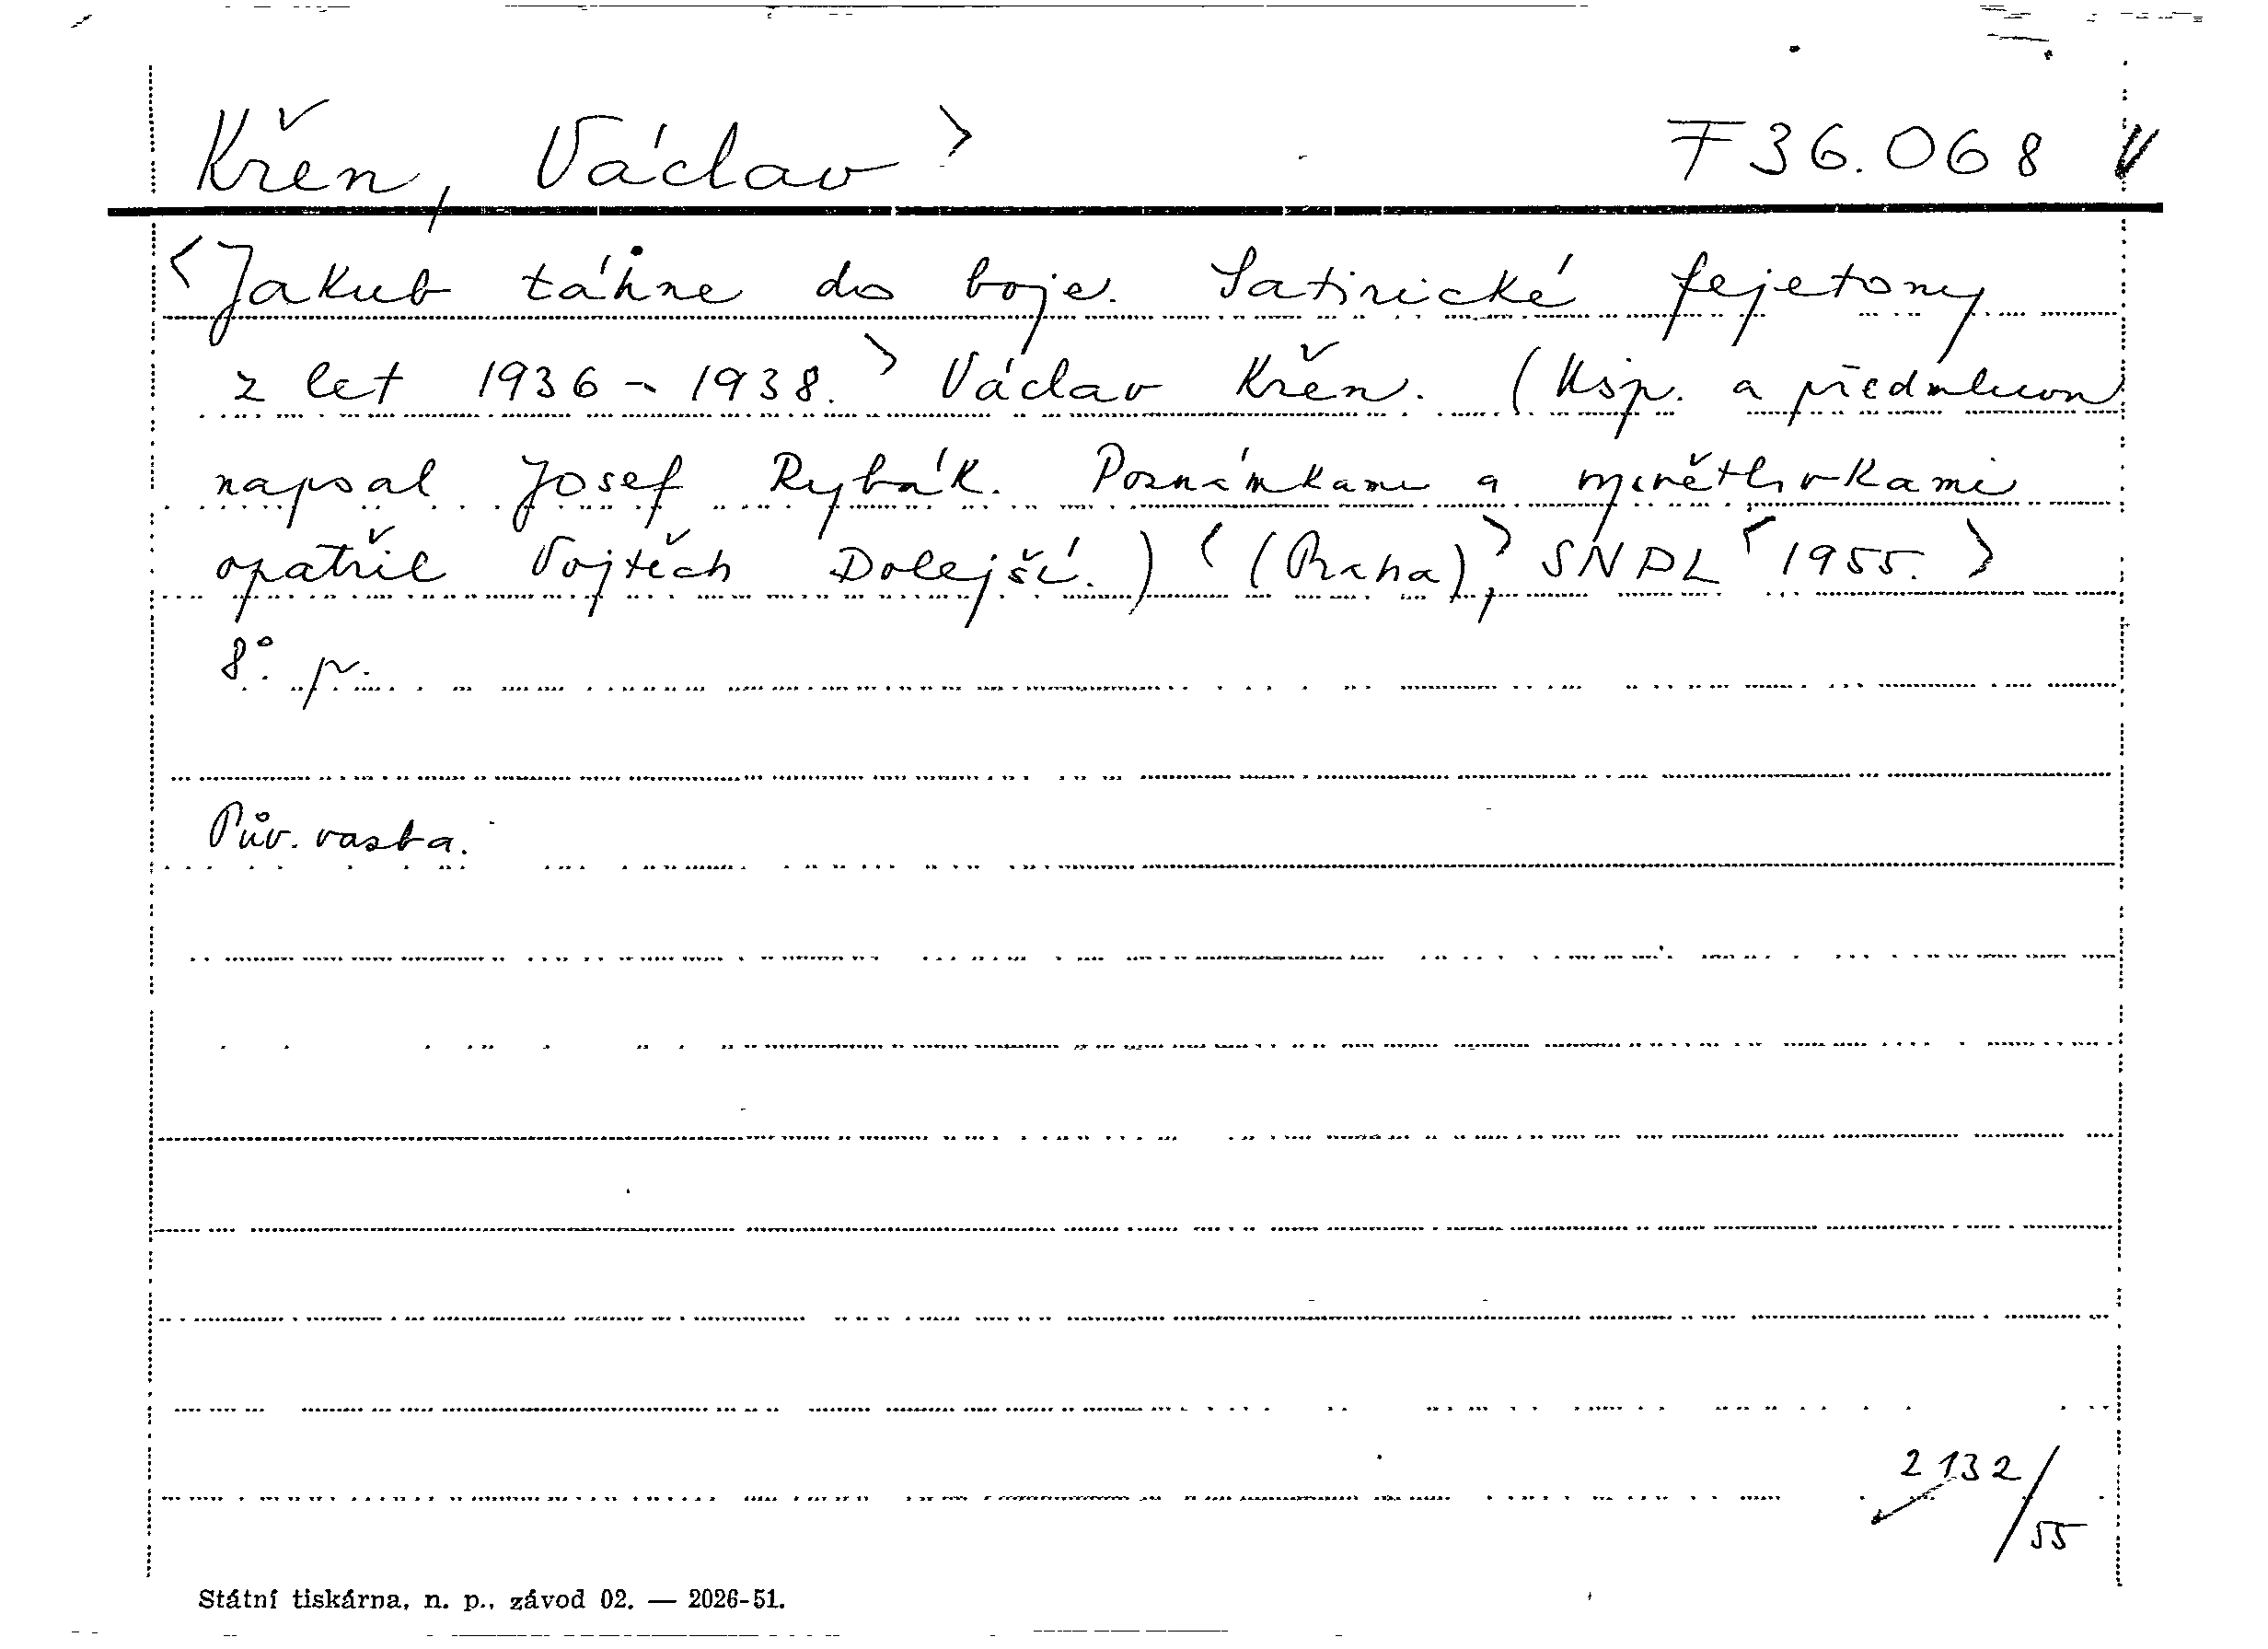 Křen, Václav > F 36.068 V
<Jakub táhne do boje. Satirické fejetony
z let 1936 - 1938.> Václav Křen. (Usp. a předmluvu
napsal Josef Rybák. Poznámkami a vysvětlivkami
opatřil Vojtěch Dolejší.) <(Praha),> SNPL <1955.>
8°. p.
Pův. vazba.
2132/55
Státní tiskárna, n. p., závod 02. — 2026-51.